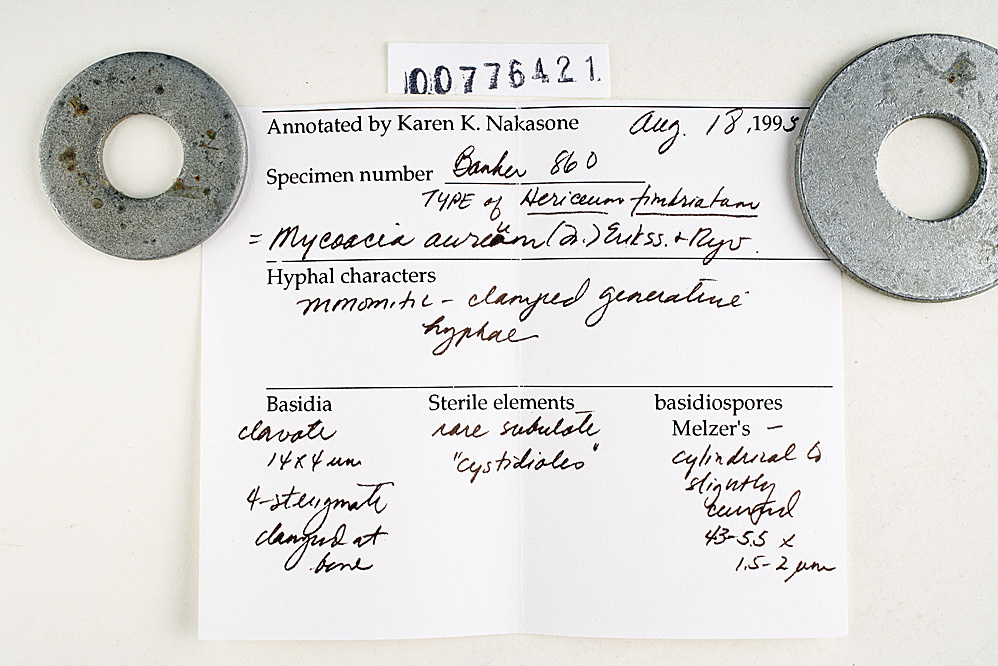 00776421.
Annotated by Karen K. Nakasone Aug. 18, 1995
Specimen number Banker 860
TYPE of Hericeum fimbriatum
= Mycoacia aureum (Fr.) Erikss. + Ryv.
Hyphal characters
monomitic - clamped generative
hyphae
Basidia
clavate
14 x 4 um
4-sterigmate
clamped at
base
Sterile elements
rare subulate
"cystidioles"
basidiospores
Melzer's –
cylindrical to
slightly
curved
4.3-5.5 x
1.5-2 µm